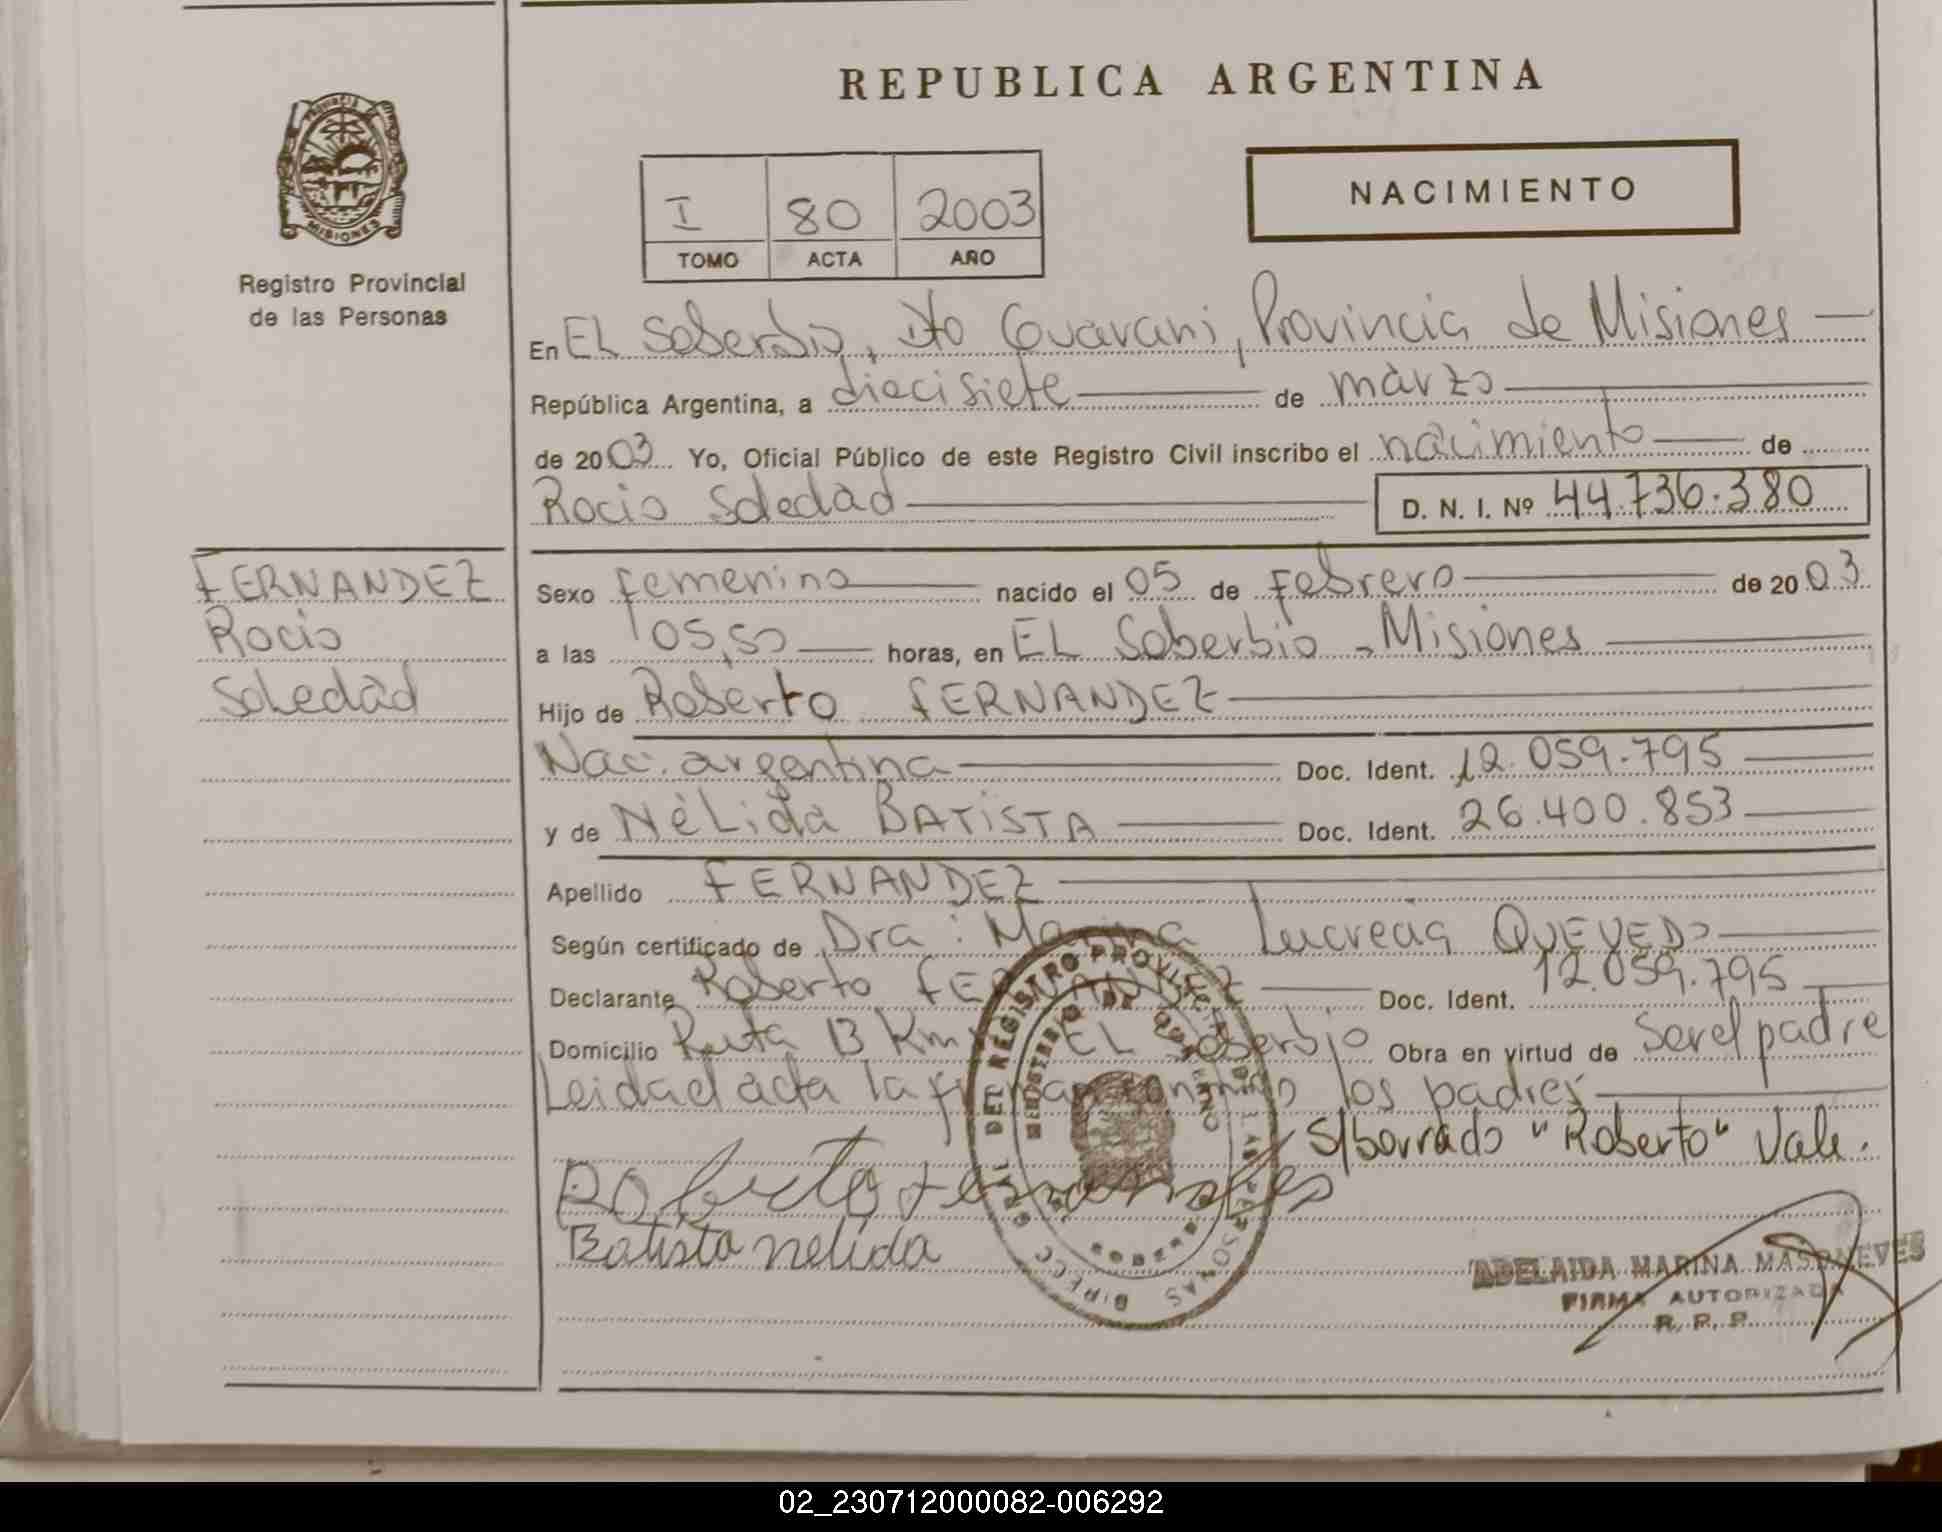 REPUBLICA ARGENTINA
PROVINCIA
MISIONES
Registro Provincial
de las Personas
I 80 2003
TOMO ACTA AÑO
NACIMIENTO
En EL Soberbio, Dto Guarani, Provincia de Misiones
República Argentina, a diecisiete de marzo
de 2003 Yo, Oficial Público de este Registro Civil inscribo el nacimiento de
Rocio Soledad D. N. I. Nº 44.736.380
FERNANDEZ
Rocio
Soledad
Sexo femenino nacido el 05 de Febrero de 2003
a las 05,50 horas, en EL Soberbio - Misiones
Hijo de Roberto FERNANDEZ
Nac. argentina Doc. Ident. 12.059.795
y de NéLida BATiSTA Doc. Ident. 26.400.853
Apellido FERNANDEZ
Según certificado de Dra: Marina Lucrecia QUEVEDO
Declarante Roberto FERNANDEZ Doc. Ident. 12.059.795
Domicilio Ruta 13 Km EL Soberbio Obra en virtud de Ser el padre
Leida el acta la firman conmigo los padres
S/borrado "Roberto" Vale.
Roberto fernandes
Batista nelida
DIRECC GRAL DEL REGISTRO PROVINCIAL DE LAS PERSONAS
MINISTERIO DE GOBIERNO
ADELAIDA MARINA MASDNEVES
FIRMA AUTORIZADA
R. P. P.
02_230712000082-006292